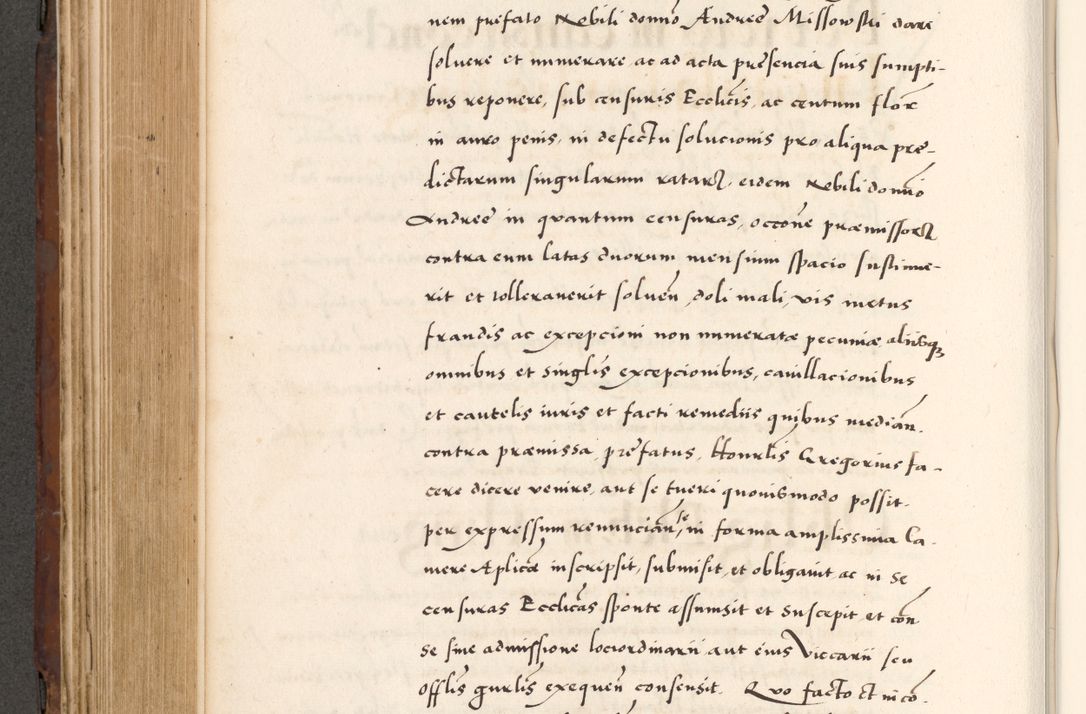 nem prefato Nobili domno Andreę Missowski dare
soluere et numerare, ac ad acta presencia suis sumpti-
bus reponere, sub censuris Ecclicis, ac centum floren
in auro penis, in defectu solucionis pro aliqua prę-
dictarum singularum ratarum, eidem Nobili domno
Andreę in quantum censuras, occone præmissorum
contra eum latas duorum mensium spacio sustinue-
rit et tollerauerit soluen, doli mali, vis metus
fraudis ac excepcioni non numeratæ pecuniæ alysque
omnibus et singlis excepcionibus, cauillacionibus
et cautelis iuris et facti remedys quibus median.
contra præmissa, prefatus, Honrlis Gregorius fa-
cere dicere venire, aut se tueri quouismodo possit.
per expressum renuncian, se in forma amplissima Ca-
mere Aplicæ inscripsit, submisit, et obligauit ac in se
censuras Ecclicas sponte assumsit et suscepit et con
se sine admissione loci ordinarii aut eius Viccarii seu
offlis gnrlis exequen consensit. Quo facto et in con-